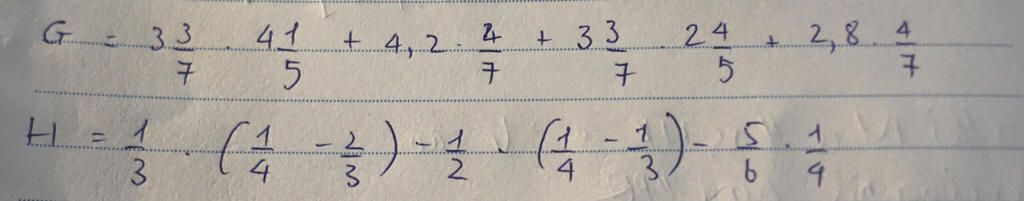 G = 3 3/7 . 4 1/5 + 4,2 . 4/7 + 3 3/7 . 2 4/5 + 2,8 . 4/7
H = 1/3 . (1/4 - 2/3) - 1/2 . (1/4 - 1/3) - 5/6 . 1/4